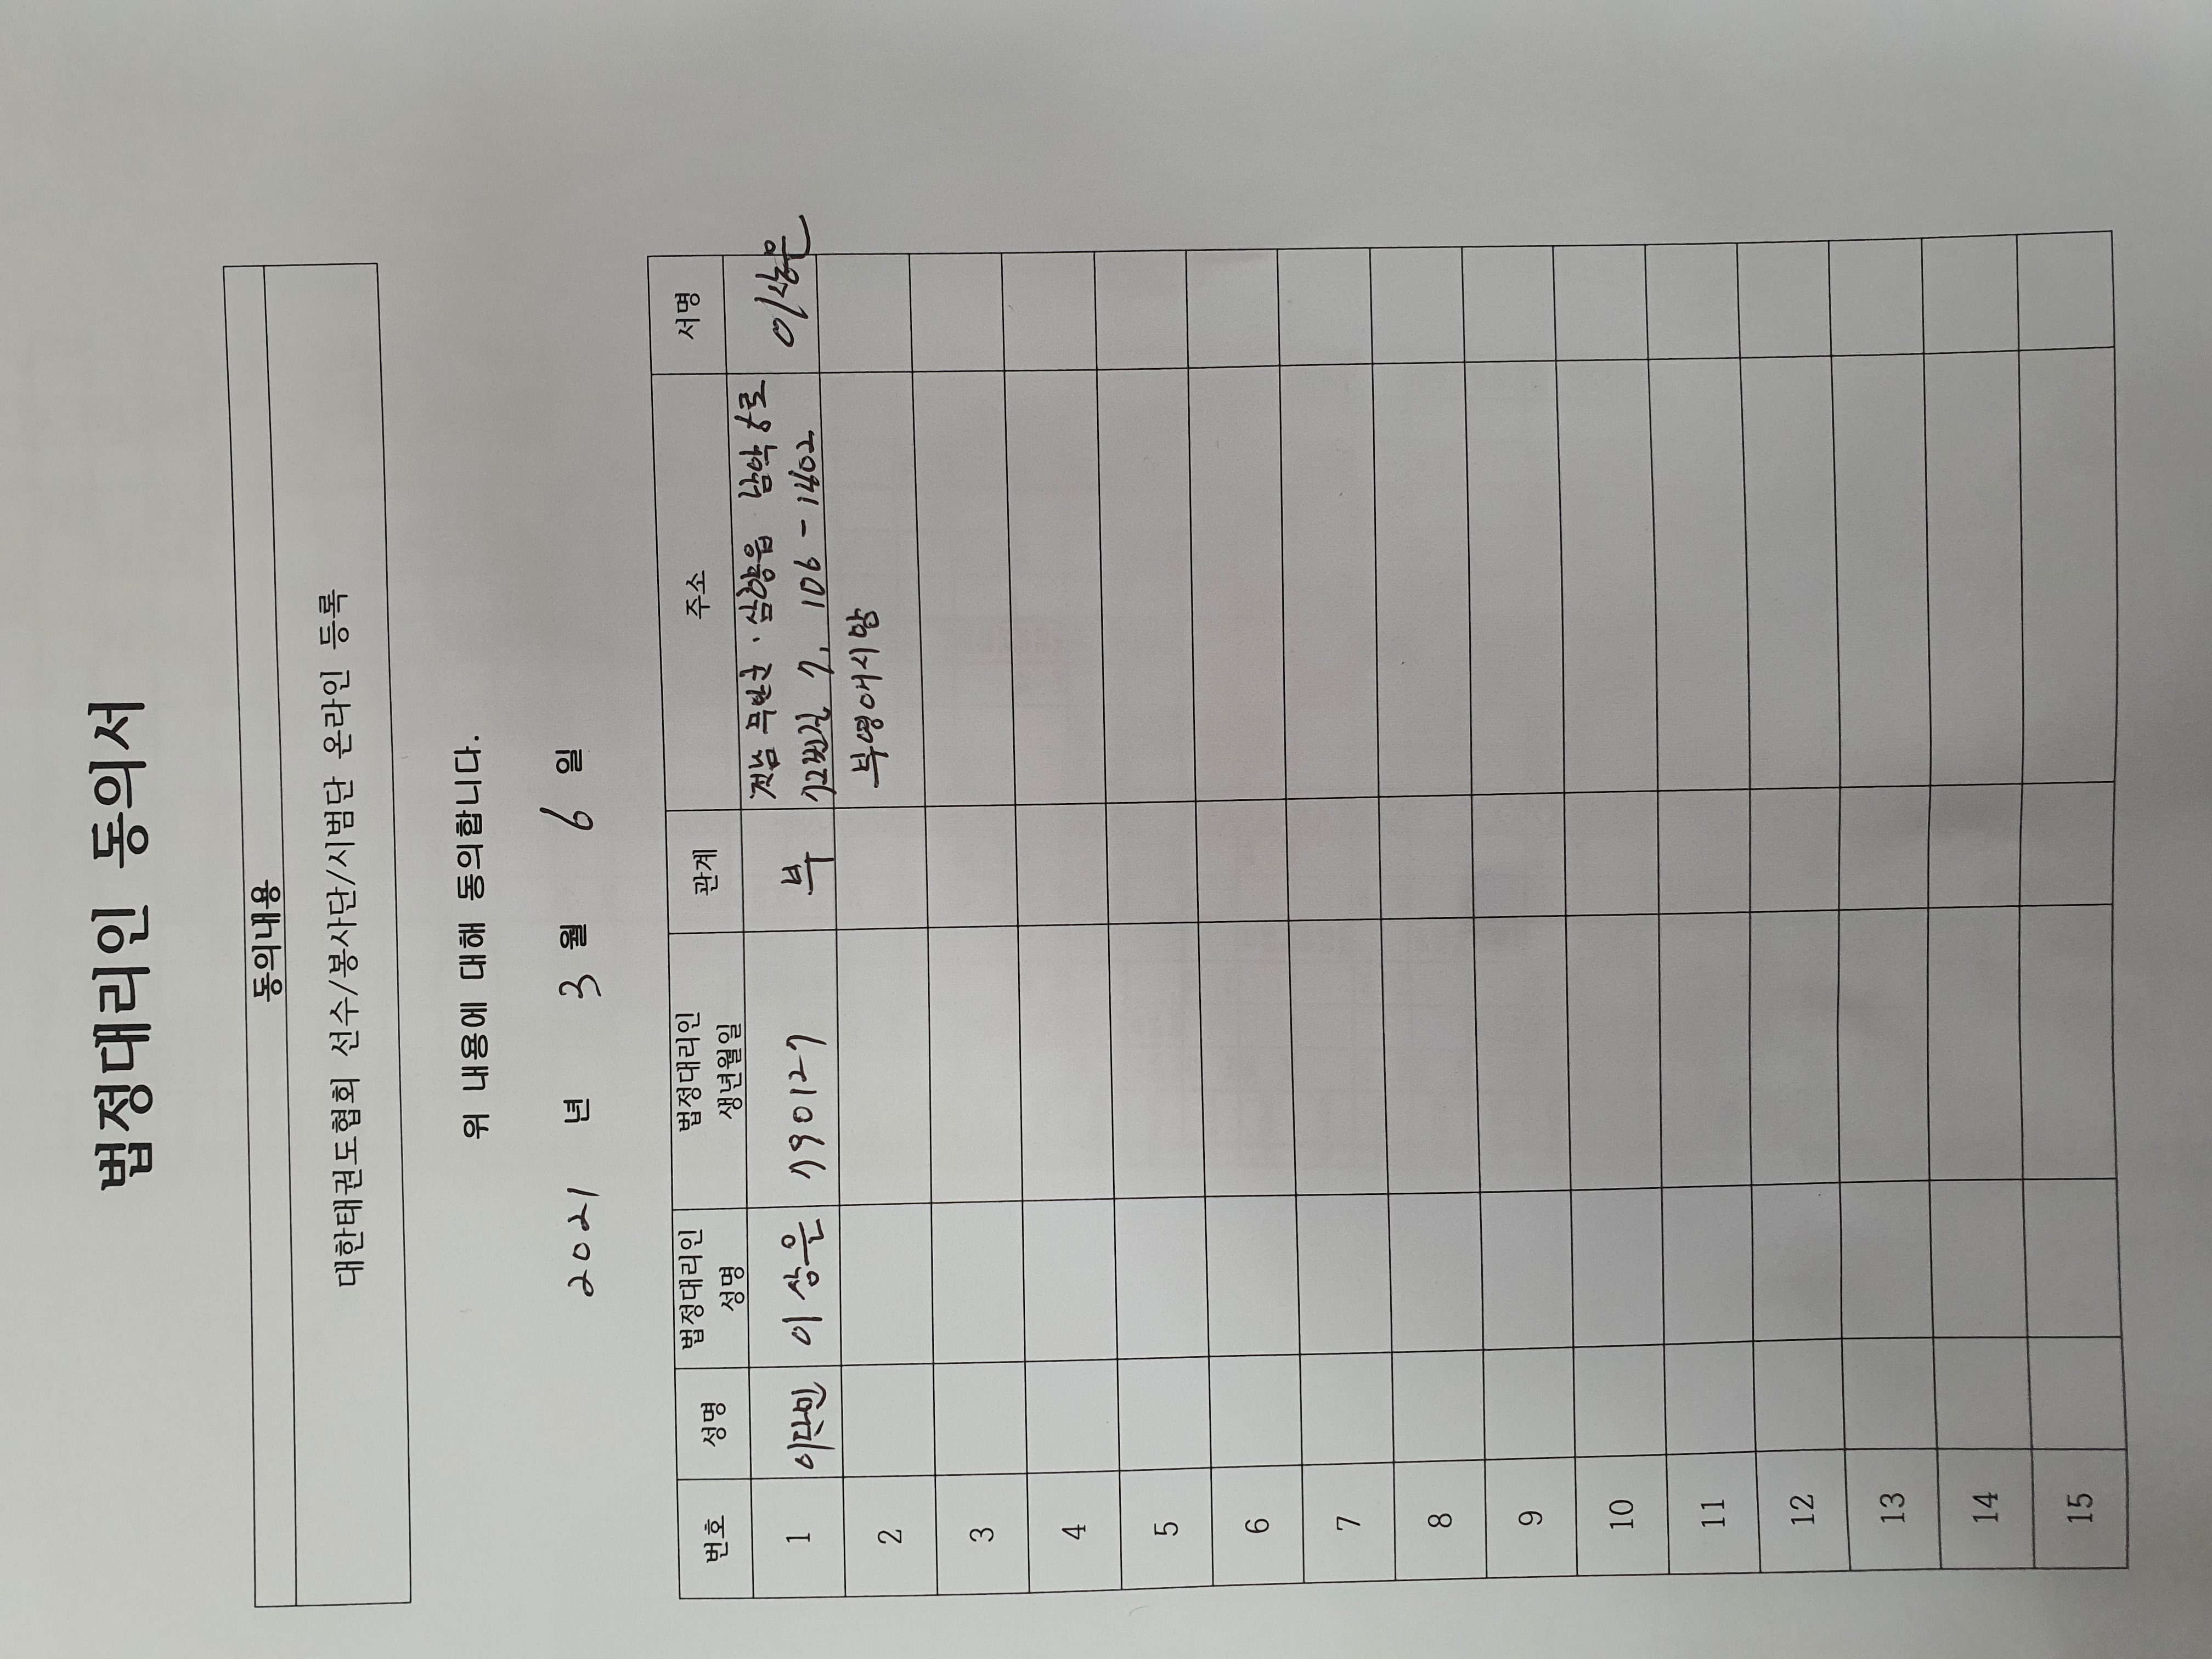 법정대리인 동의서
동의내용
대한태권도협회 선수/봉사단/시범단 온라인 등록
위 내용에 대해 동의합니다.
2021 년 3 월 6 일
번호 성명 법정대리인 성명 법정대리인 생년월일 관계 주소 서명
1 이단민 이상은 790127 부 전남 무안군 삼향읍 남악로 이상은
72번길 7, 106-1402
2 부영애시앙
3
4
5
6
7
8
9
10
11
12
13
14
15